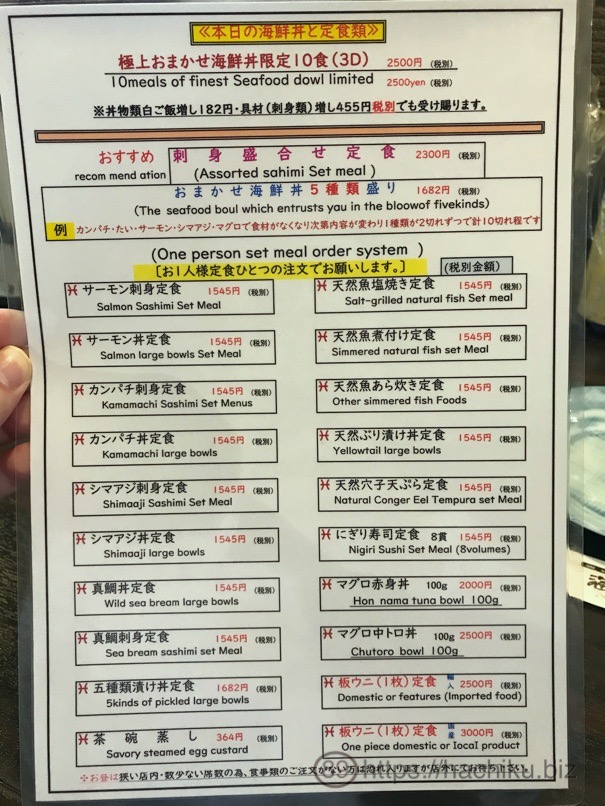 ≪本日の海鮮丼と定食類≫
極上おまかせ海鮮丼限定10食(3D) 2500円 (税別)
10meals of finest Seafood dowl limited 2500yen (税別)
※丼物類白ご飯増し182円・具材(刺身類)増し455円税別でも受け賜ります。
おすすめ 刺身盛合せ定食 2300円 (税別)
recom mend ation (Assorted sahimi Set meal )
おまかせ海鮮丼5種類盛り 1682円 (税別)
(The seafood boul which entrusts yau in the bloowof fivekinds)
例 カンパチ・たい・サーモン・シマアジ・マグロで食材がなくなり次第内容が変わり1種類が2切れずつで計10切れ程です
(One person set meal order system )
[お1人様定食ひとつの注文でお願いします。] (税別金額)
サーモン刺身定食 1545円 (税別)
Salmon Sashimi Set Meal
サーモン丼定食 1545円 (税別)
Salmon large bowls Set Meal
カンパチ刺身定食 1545円 (税別)
Kamamachi Sashimi Set Menus
カンパチ丼定食 1545円 (税別)
Kamamachi large bowls
シマアジ刺身定食 1545円 (税別)
Shimaaji Sashimi Set Meal
シマアジ丼定食 1545円 (税別)
Shimaaji large bowls
真鯛丼定食 1545円 (税別)
Wild sea bream large bowls
真鯛刺身定食 1545円 (税別)
Sea bream sashimi set Meal
五種類漬け丼定食 1682円 (税別)
5kinds of pickled large bowls
茶碗蒸し 364円 (税別)
Savory steamed egg custard
天然魚塩焼き定食 1545円 (税別)
Salt-grilled natural fish Set meal
天然魚煮付け定食 1545円 (税別)
Simmered natural fish set Meal
天然魚あら炊き定食 1545円 (税別)
Other simmered fish Foods
天然ぶり漬け丼定食 1545円 (税別)
Yellowtail large bowls
天然穴子天ぷら定食 1545円 (税別)
Natural Conger Eel Tempura set Meal
にぎり寿司定食 8貫 1545円 (税別)
Nigiri Sushi Set Meal (8volumes)
マグロ赤身丼 100g 2000円 (税別)
Hon nama tuna bowl 100g
マグロ中トロ丼 100g 2500円 (税別)
Chutoro bowl 100g
板ウニ(1枚)定食 輸入 2500円 (税別)
Domestic or features (Imported food)
板ウニ(1枚)定食 国産 3000円 (税別)
One piece domestic or local product
※お昼は狭い店内・数少ない席数の為、食事類のご注文がない方は恐れ入りますが店外にてお待ち下さい。
89 https://hachiku.biz